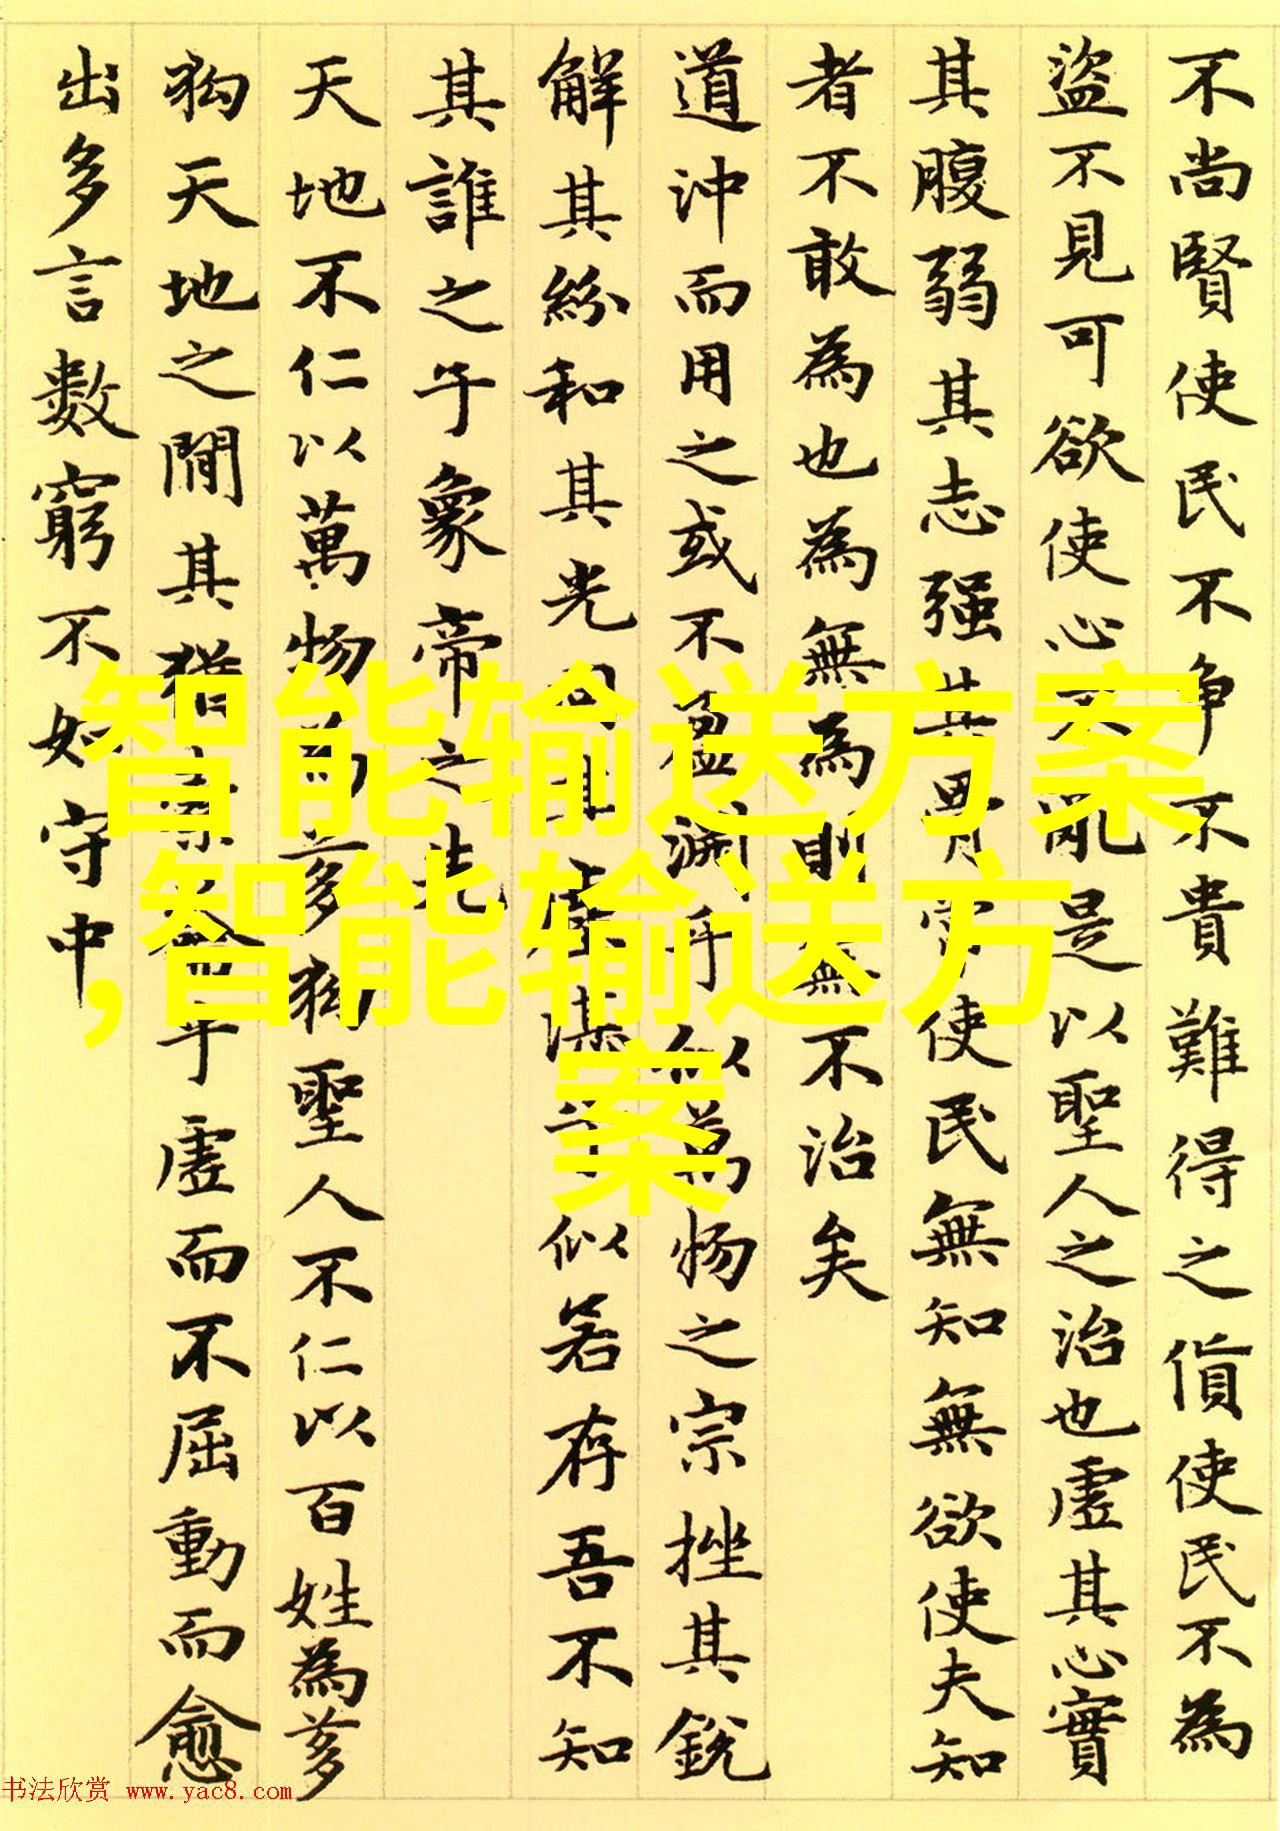 不尚賢使民不争不貴難得之貨使民不為
盜不見可欲使心不亂是以聖人之治也虛其心實
其腹弱其志强其骨常使民無知無欲使夫知
者不敢為也為無為則無不治矣
道沖而用之或不盈淵乎似萬物之宗挫其銳
解其紛和其光同其塵湛乎似若存吾不知
其誰之子象帝之先
天地不仁以萬物為芻狗聖人不仁以百姓為芻
狗天地之間其猶橐籥乎虛而不屈動而愈
出多言數窮不如守中
智能输送方案
,智能输送方
案
书法欣赏 www.yac8.com